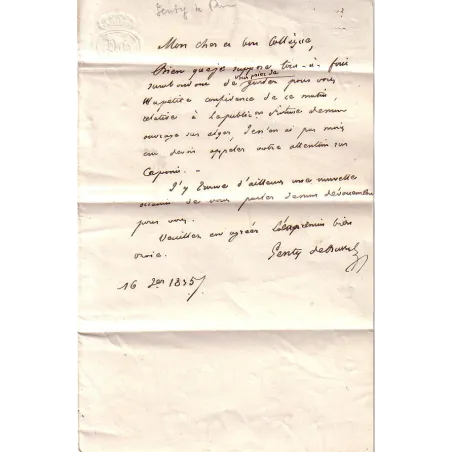 Genty de Bus
Mon cher et bon Collègue,
Bien que je suppose tout-à-fait
vous prier de
surabondant de garder pour vous
ma petite confidence de ce matin,
relative à la publication future de mon
ouvrage sur Alger, je n'en ai pas moins
cru devoir appeler votre attention sur
ce point. -
J'y trouve d'ailleurs une nouvelle
occasion de vous parler de mon dévouement
pour vous.
Veuillez en agréer l'expression bien
vraie.
Genty de Bussy
16 1835